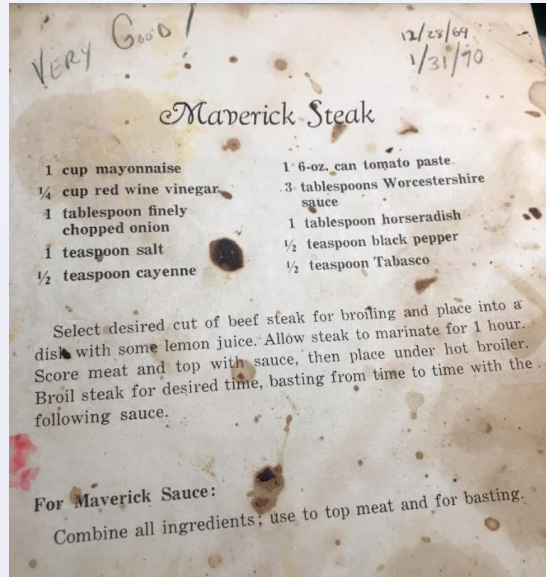 VERY GOOD!
12/28/69
1/31/70
Maverick Steak
1 cup mayonnaise
¼ cup red wine vinegar
1 tablespoon finely
chopped onion
1 teaspoon salt
½ teaspoon cayenne
1 6-oz. can tomato paste
3 tablespoons Worcestershire
sauce
1 tablespoon horseradish
½ teaspoon black pepper
½ teaspoon Tabasco
Select desired cut of beef steak for broiling and place into a
dish with some lemon juice. Allow steak to marinate for 1 hour.
Score meat and top with sauce, then place under hot broiler.
Broil steak for desired time, basting from time to time with the
following sauce.
For Maverick Sauce:
Combine all ingredients; use to top meat and for basting.